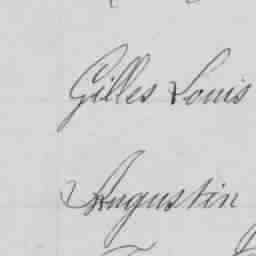 Gilles Louis
Augustin